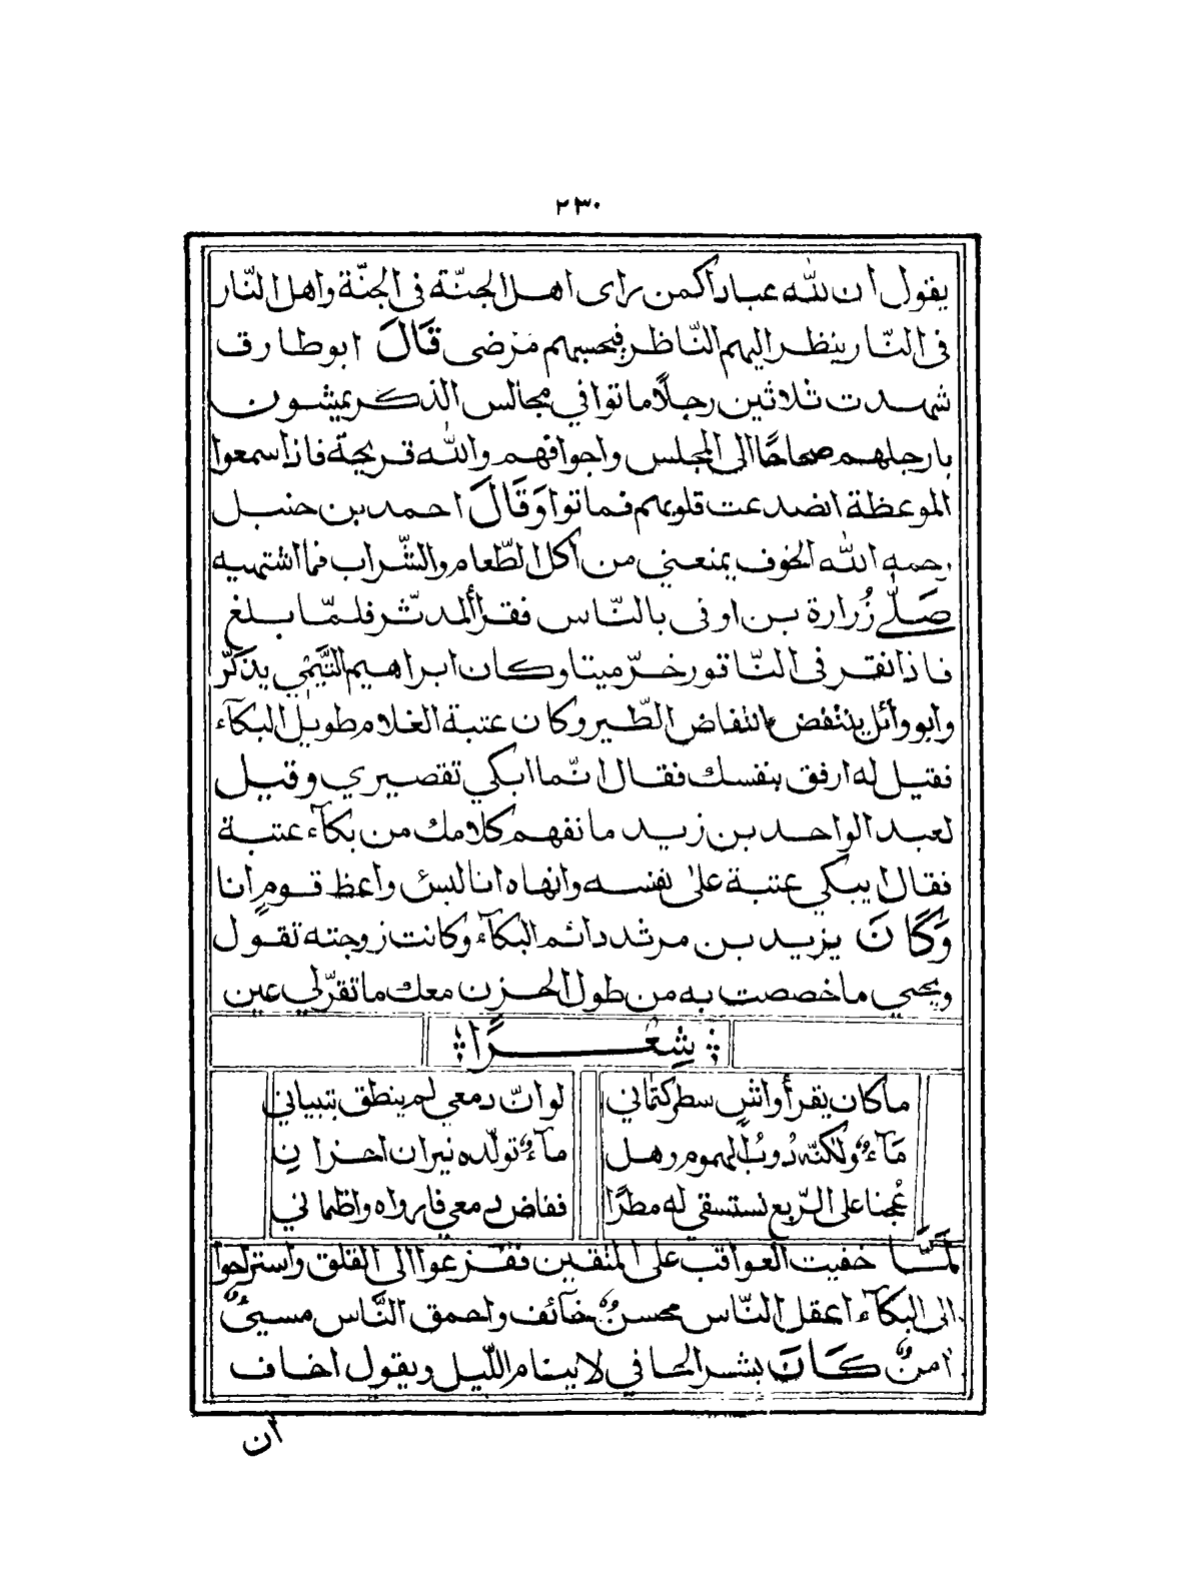 ٢٣٠
يقول ان لله عبادا كمن راى اهل الجنّة فى الجنّة واهل النّار
فى النّار ينظر اليهم النّاظر فيحسبهم مَرْضى قَالَ ابو طارق
شهدت ثلاثين رجلًا ماتوا في مجالس الذكر يمشون
بارجلهم صحاحًا الى المجلس واجوافهم والله قريحة فاذا سمعوا
الموعظة انصدعت قلوبهم فماتوا وَقَالَ احمد بن حنبل
رحمه الله الخوف يمنعني من اكل الطّعام والشّراب فما اشتهيه
صَلّٰے زُرارة بن اوفى بالنّاس فقرأ المدثّر فلمّا بلغ
فاذا نقر فى النّاقور خرّ ميتا وكان ابراهيم التَّيْمي يذكّر
وابو وائل ينتفض انتفاض الطّير وكان عتبة الغلام طويل البكآء
فقيل له ارفق بنفسك فقال انّما ابكي تقصيري وقيل
لعبد الواحد بن زيد ما نفهم كلامك من بكآء عتبة
فقال ايبكي عتبة على نفسه وانهاه انا لبئس واعظ قومٍ انا
وَكَانَ يزيد بن مرثد دائم البكآء وكانت زوجته تقول
ويحي ما خصصت به من طول الحزن معك ما تقرّ لي عين
شِعْرًا
ماكان يقرأ واشٍ سطر كتماني لو انّ دمعي لم ينطق بتبياني
مَآءٌ ولكنّه ذُوبُ الهموم وهل مآءٌ تولّده نيران احزانِ
عُجنا على الرّبع نستسقي له مطرًا ففاض دمعي فارواه واظماني
لَمَّا خفيت العواقب على المتقين فَفَزعوا الى القلق واستراحوا
الى البكآء اعقل النّاس محسنٌ خآئف واحمق النَّاس مسيئٌ
امنٌ كَانَ بشر الحافي لا ينام اللّيل ويقول اخاف
ان